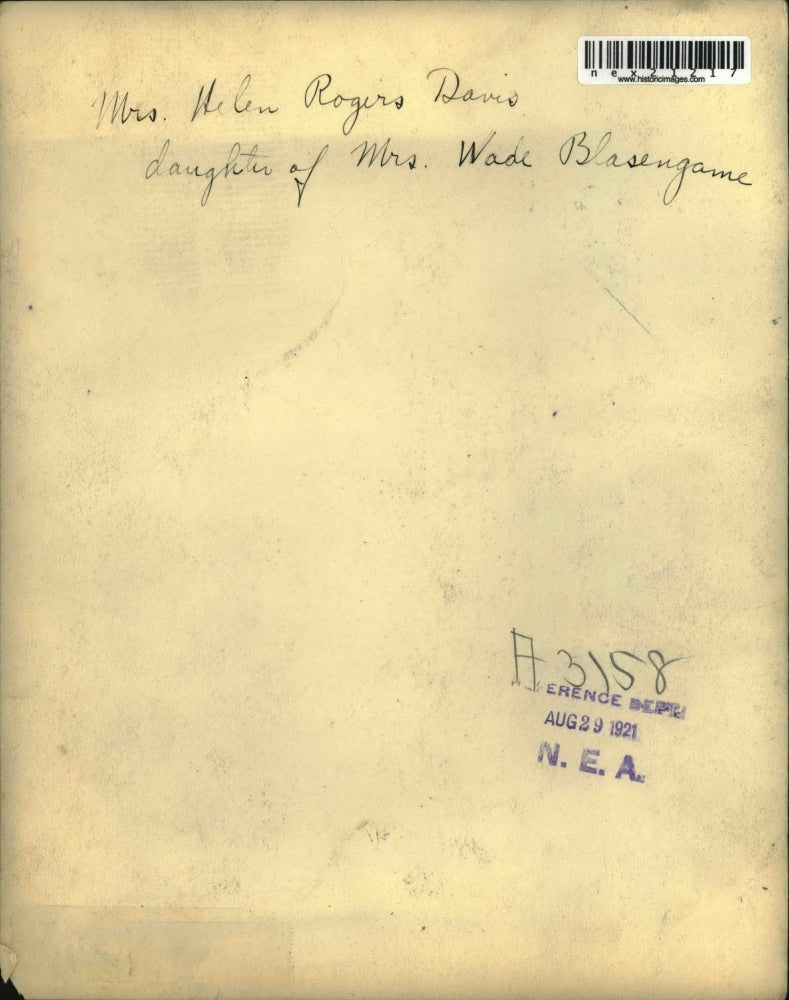 nex21217
www.historicimages.com
Mrs. Helen Rogers Davis
daughter of Mrs. Wade Blasengame
A 3158
ERENCE DEPT.
AUG 29 1921
N. E. A.